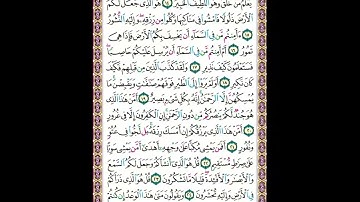 يَعْلَمُ مَنْ خَلَقَ وَهُوَ ٱللَّطِيفُ ٱلْخَبِيرُ ١٤ هُوَ ٱلَّذِى جَعَلَ لَكُمُ
ٱلْأَرْضَ ذَلُولًا فَٱمْشُوا۟ فِى مَنَاكِبِهَا وَكُلُوا۟ مِن رِّزْقِهِۦ وَإِلَيْهِ ٱلنُّشُورُ
١٥ ءَأَمِنتُم مَّن فِى ٱلسَّمَآءِ أَن يَخْسِفَ بِكُمُ ٱلْأَرْضَ فَإِذَا هِىَ
تَمُورُ ١٦ أَمْ أَمِنتُم مَّن فِى ٱلسَّمَآءِ أَن يُرْسِلَ عَلَيْكُمْ حَاصِبًا
فَسَتَعْلَمُونَ كَيْفَ نَذِيرِ ١٧ وَلَقَدْ كَذَّبَ ٱلَّذِينَ مِن قَبْلِهِمْ فَكَيْفَ
كَانَ نَكِيرِ ١٨ أَوَلَمْ يَرَوْا۟ إِلَى ٱلطَّيْرِ فَوْقَهُمْ صَٰٓفَّٰتٍ وَيَقْبِضْنَ مَا
يُمْسِكُهُنَّ إِلَّا ٱلرَّحْمَٰنُ إِنَّهُۥ بِكُلِّ شَىْءٍۭ بَصِيرٌ ١٩ أَمَّنْ هَٰذَا ٱلَّذِى
هُوَ جُندٌ لَّكُمْ يَنصُرُكُم مِّن دُونِ ٱلرَّحْمَٰنِ إِنِ ٱلْكَٰفِرُونَ إِلَّا فِى غُرُورٍ
٢٠ أَمَّنْ هَٰذَا ٱلَّذِى يَرْزُقُكُمْ إِنْ أَمْسَكَ رِزْقَهُۥ بَل لَّجُّوا۟ فِى عُتُوٍّ
وَنُفُورٍ ٢١ أَفَمَن يَمْشِى مُكِبًّا عَلَىٰ وَجْهِهِۦٓ أَهْدَىٰٓ أَمَّن يَمْشِى سَوِيًّا
عَلَىٰ صِرَٰطٍ مُّسْتَقِيمٍ ٢٢ قُلْ هُوَ ٱلَّذِىٓ أَنشَأَكُمْ وَجَعَلَ لَكُمُ ٱلسَّمْعَ
وَٱلْأَبْصَٰرَ وَٱلْأَفْـِٔدَةَ قَلِيلًا مَّا تَشْكُرُونَ ٢٣ قُلْ هُوَ ٱلَّذِى ذَرَأَكُمْ
فِى ٱلْأَرْضِ وَإِلَيْهِ تُحْشَرُونَ ٢٤ وَيَقُولُونَ مَتَىٰ هَٰذَا ٱلْوَعْدُ إِن كُنتُمْ